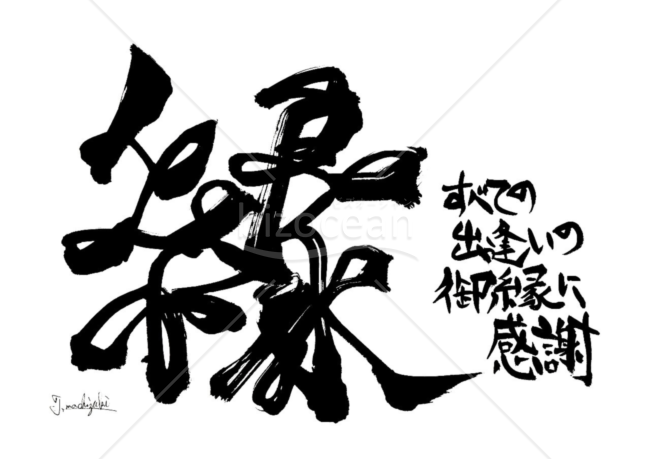 縁
すべての
出逢いの
御縁に
感謝
bizocean